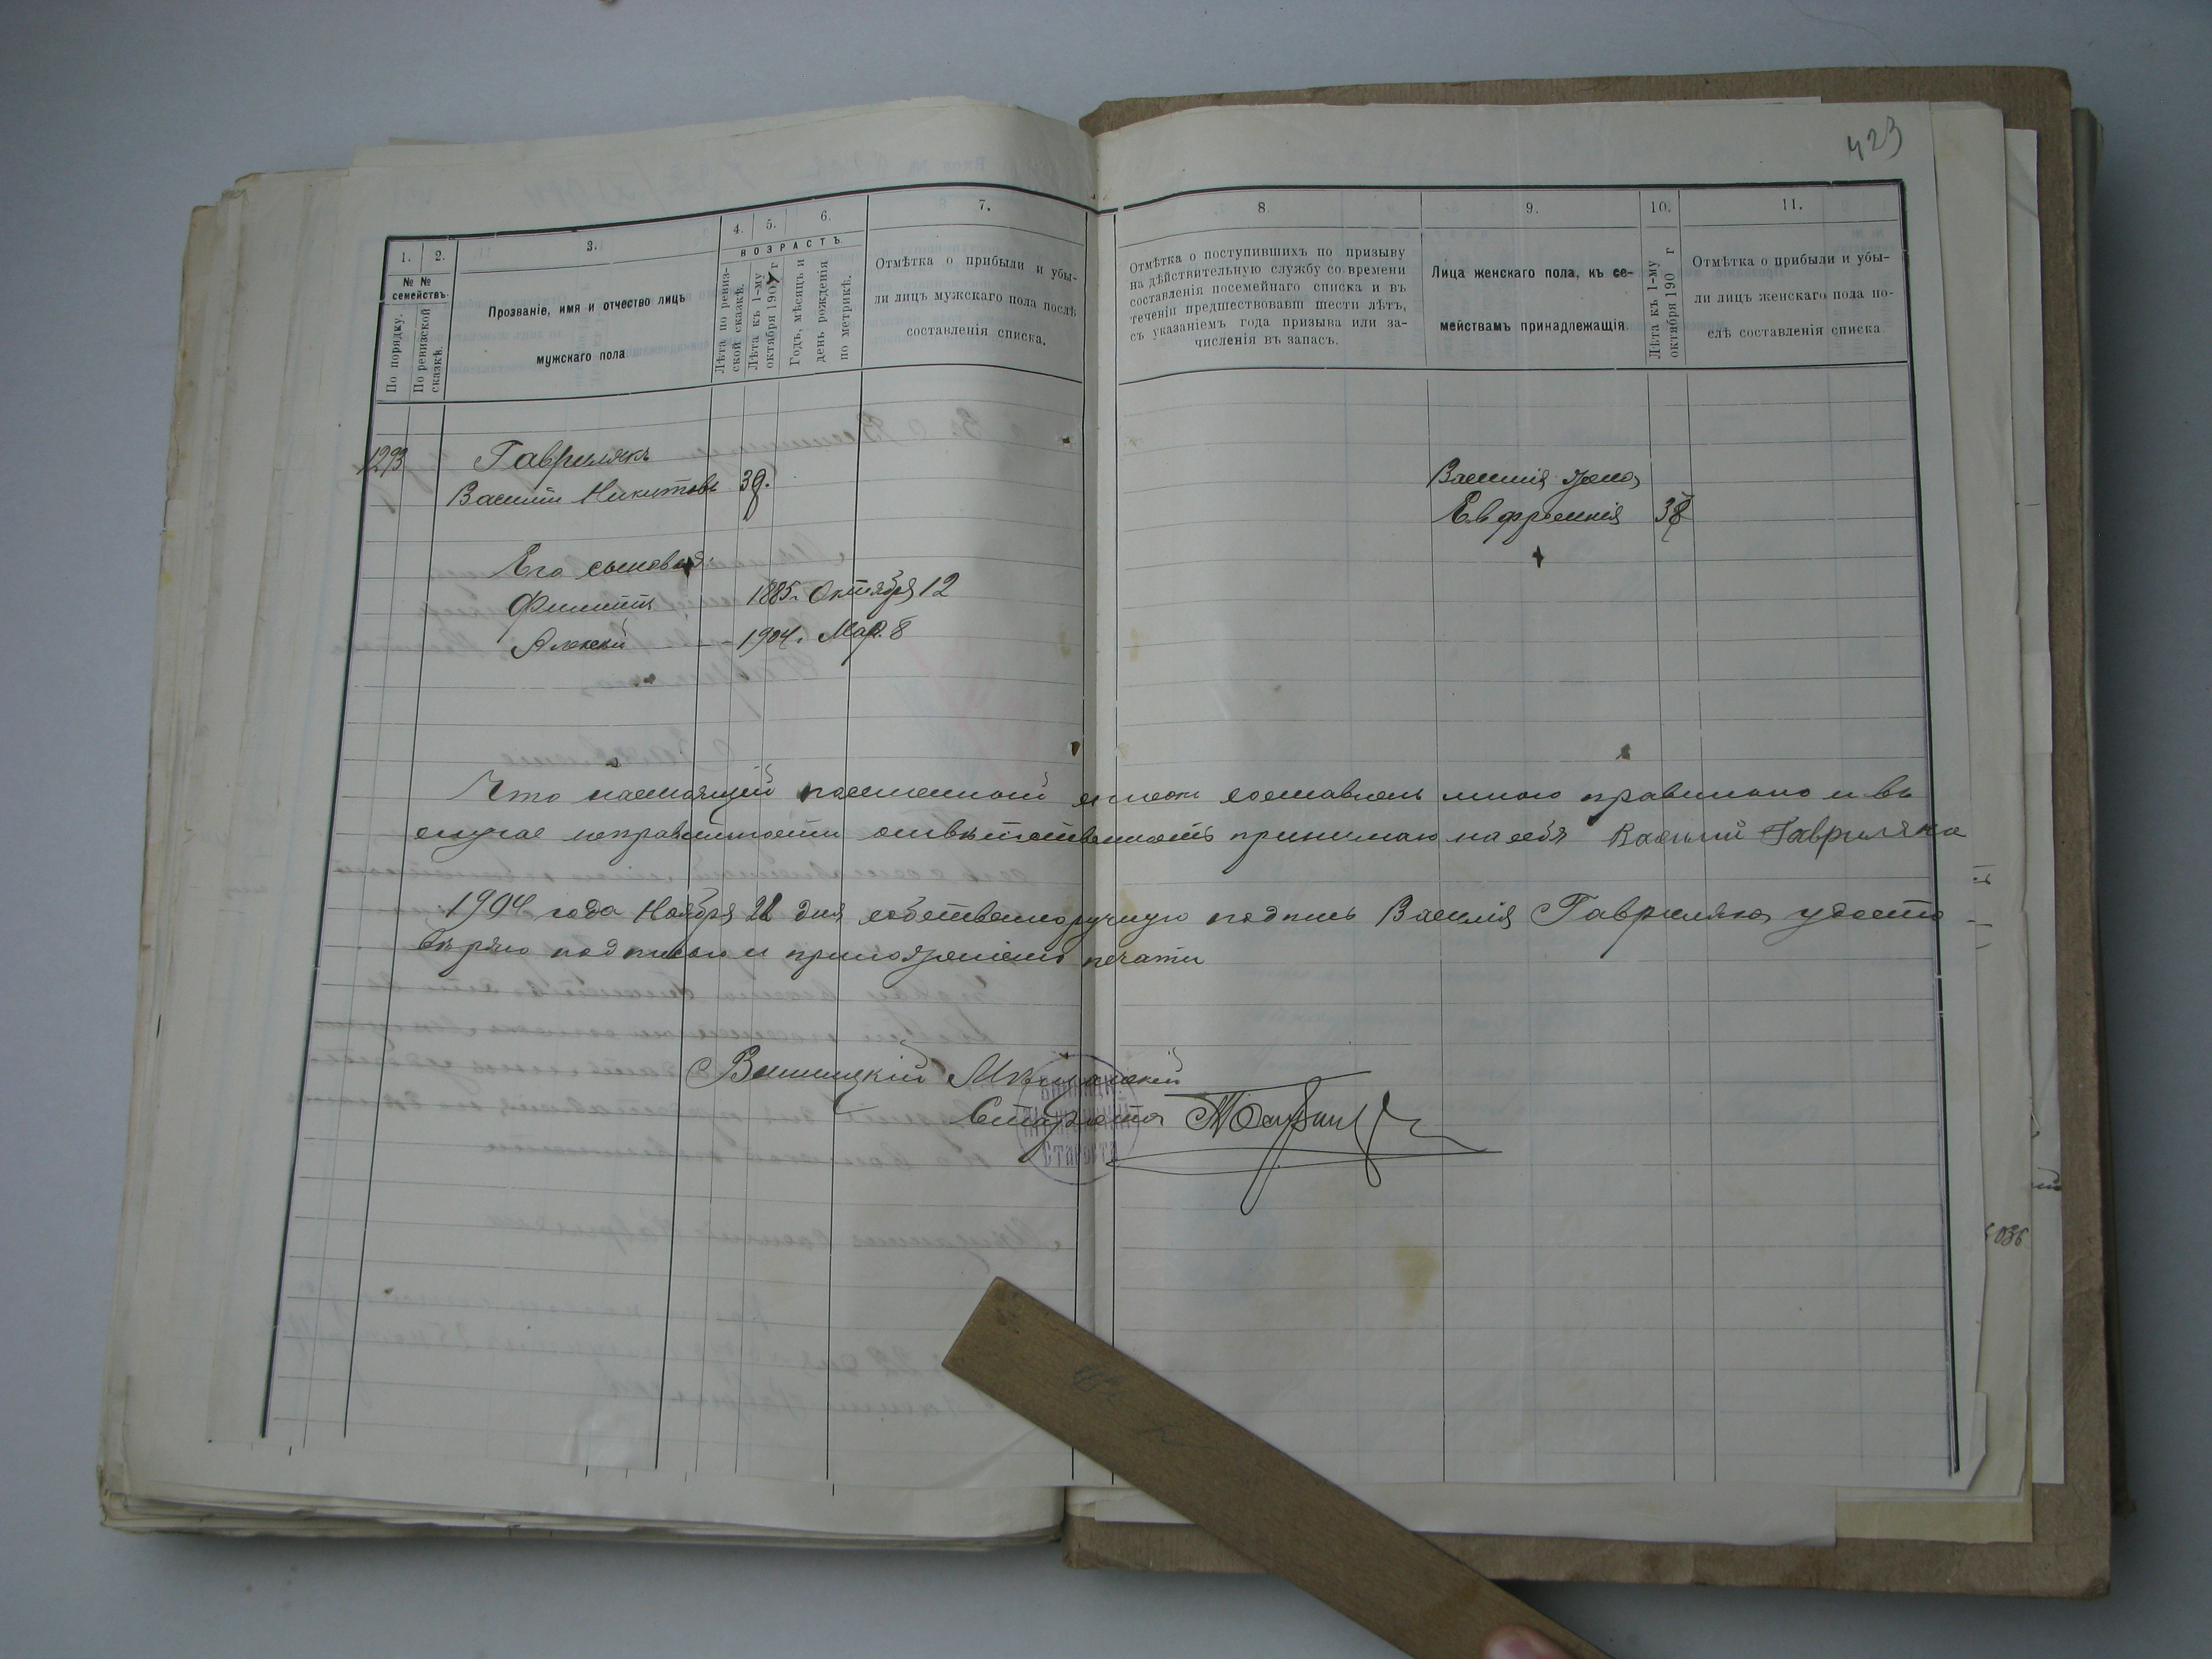 423
1.
2.
3.
4.
5.
6.
7.
8.
9.
10.
11.
№ №
семействъ.
По порядку.
По ревизской
сказкѣ.
Прозваніе, имя и отчество лицъ
мужскаго пола
ВОЗРАСТЪ.
Лѣта по ревиз-
ской сказкѣ.
Лѣта къ 1-му
октября 1904 г
Годъ, мѣсяцъ и
день рожденія
по метрикѣ.
Отмѣтка о прибыли и убы-
ли лицъ мужскаго пола послѣ
составленія списка.
Отмѣтка о поступившихъ по призыву
на дѣйствительную службу со времени
составленія посемейнаго списка и въ
теченіи предшествовавш шести лѣтъ,
съ указаніемъ года призыва или за-
численія въ запасъ.
Лица женскаго пола, къ се-
мействамъ принадлежащія.
Лѣта къ 1-му
октября 190 г
Отмѣтка о прибыли и убы-
ли лицъ женскаго пола по-
слѣ составленія списка.
1293
Гаврилякъ
Василій Никитовъ 39.
Василія жена
Евфросинія 38
Его сыновья:
Филиппъ 1885. Октября 12
Алексѣй 1904. Мар. 8
Что настоящій посемейный списокъ составленъ мною правильно и въ
случае неправильности отвѣтственность принимаю на себя Василий Гавриляка
1904 года Ноября 22 дня собственноручную подпись Василія Гавриляка удосто
вѣряю подписью и приложеніемъ печати
Староста
Староста